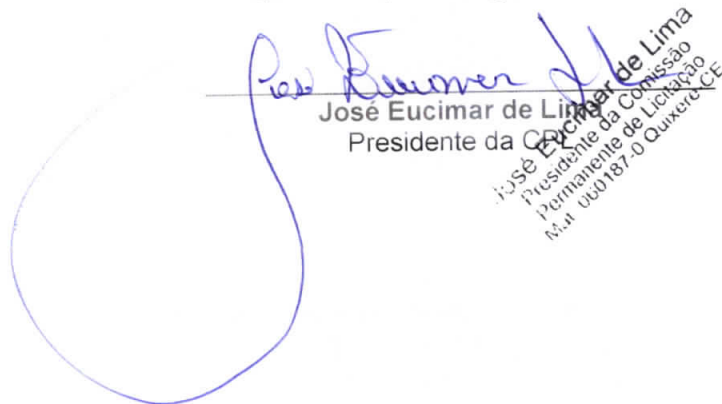 José Eucimar de Lima
Presidente da CPL
José Eucimar de Lima
Presidente da Comissão
Permanente de Licitação
Mat 060187-0 Quixeré-CE